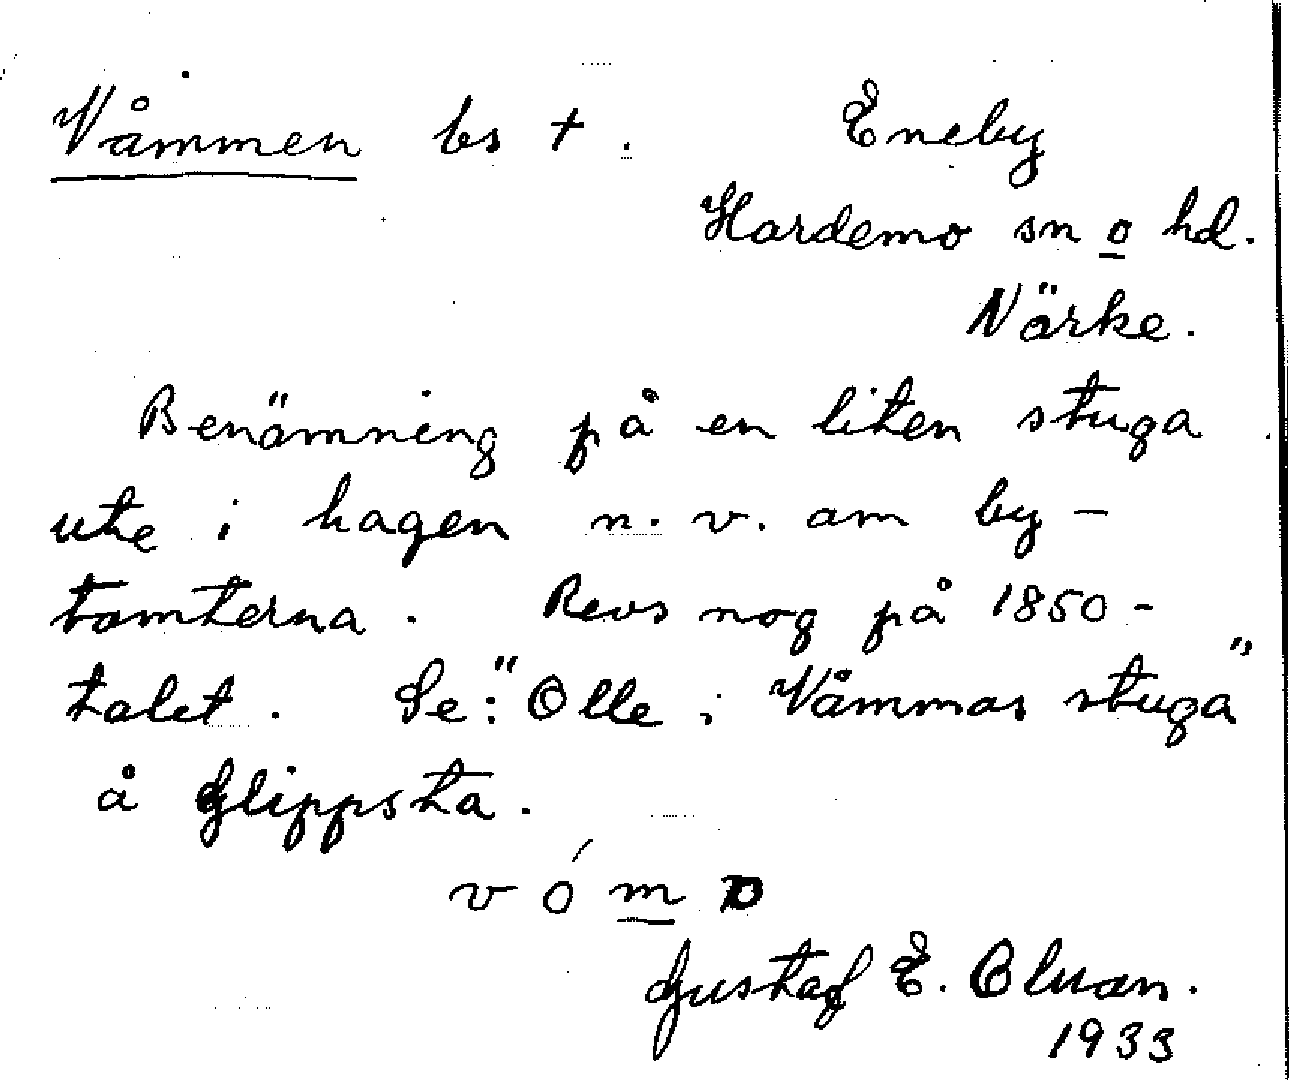 Våmmen bs †. Eneby
Hardemo sn o hd.
Närke.
Benämning på en liten stuga
ute i hagen n. v. om by-
tomterna. Revs nog på 1850-
talet. Se: "Olle i Våmmas stuga"
å Glippsta.
vóm
Gustaf E.
1933